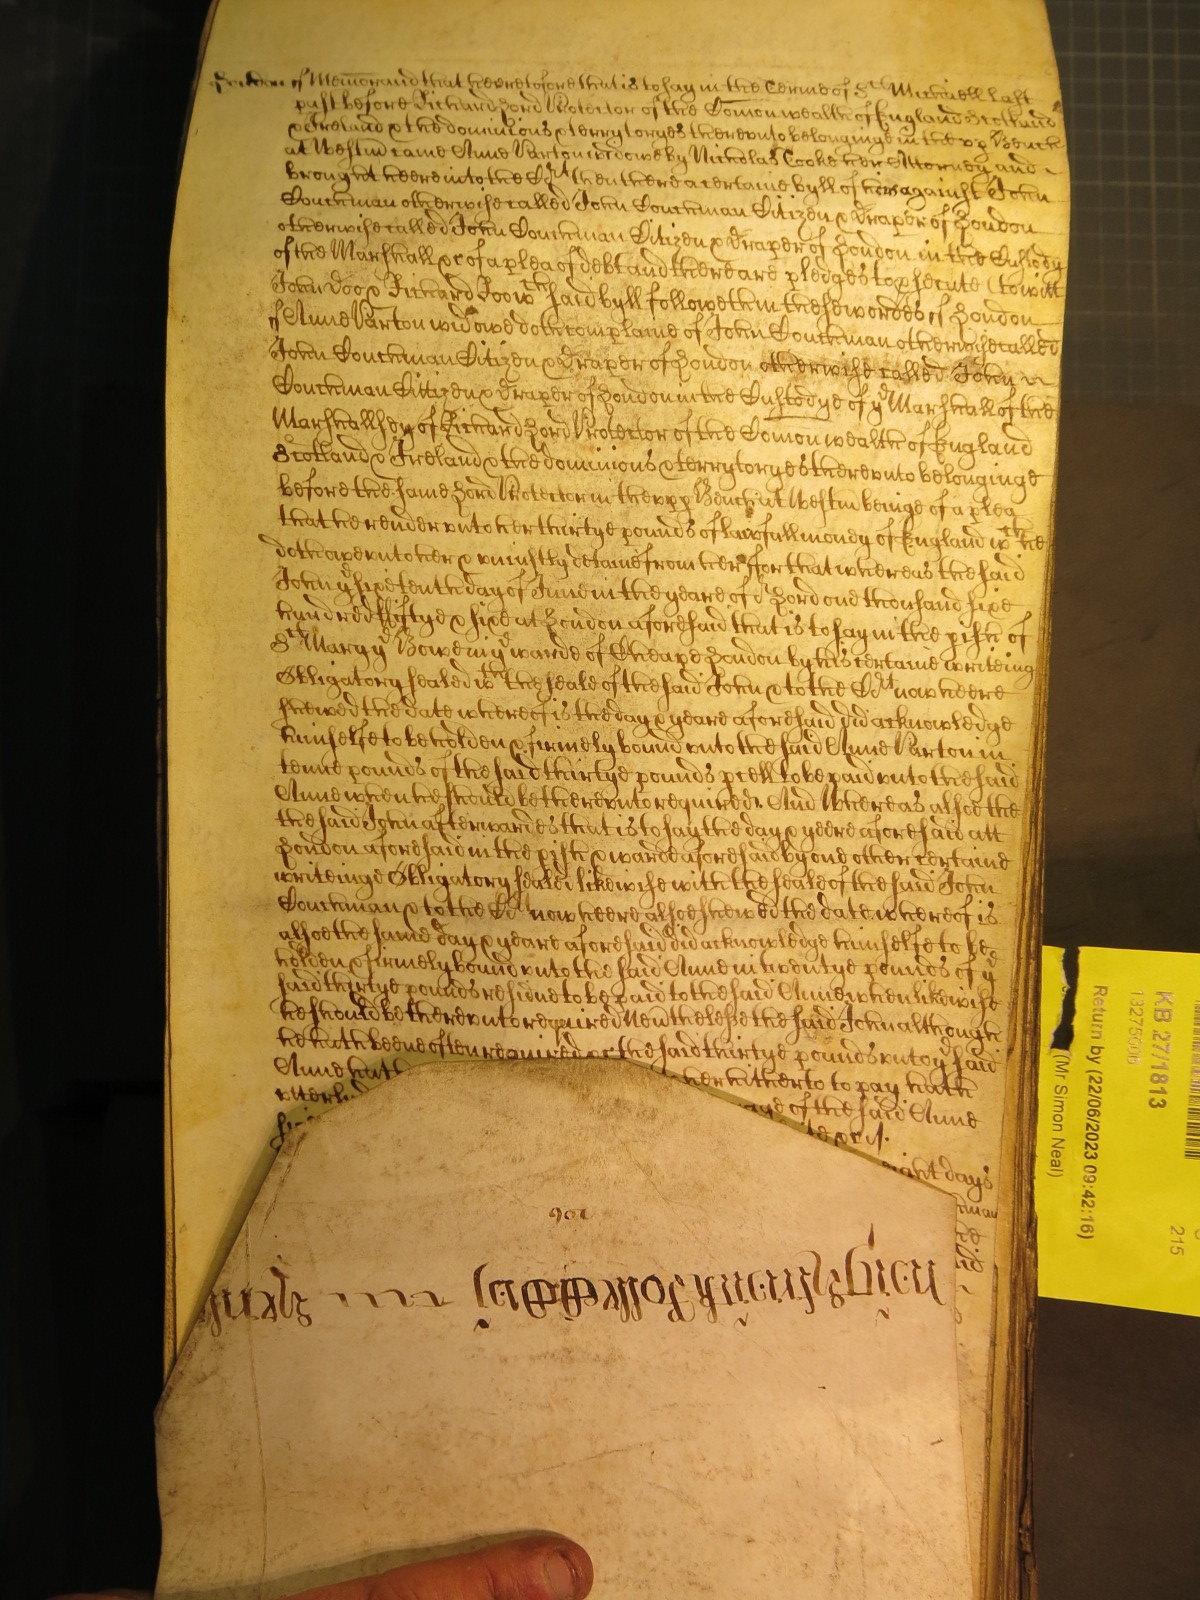 London ss Memorand that heeretofore that is to say in the Terme of St Michaell last
past before Richard Lord Protector of the Comon wealth of England Scotland
& Ireland & the dominions & terrytoryes thereunto belonginge in the upp Bench
at Westm came Anne Barton widowe by Nicholas Cooke her Attorney and
brought heere into the Cort then there a certaine byll of hers against John
Couchman otherwise called John Couchman Citizen & Draper of London
otherwise called John Couchman Citizen & Draper of London in the Custody
of the Marshall &c of a plea of debt and there are pledges to psecute (to witt
John Doo & Richard Roo wch said byll followeth in these wordes ss London
ss Anne Barton widowe doth complaine of John Couchman otherwise called
John Couchman Citizen & Draper of London otherwise called John
Couchman Cittizen & Draper of London in the Custodye of ye Marshall of the
Marshallsey of Richard Lord Protector of the Comon wealth of England
Scotland & Ireland & the dominions & terrytoryes thereunto belonginge
before the same Lord Protector in the upp Bench at Westm beinge of a plea
that he render unto her thirtye pounds of lawfull money of England wch he
doth owe unto her & uniustly detaine from her for that whereas the said
John ye sixetenth day of June in the yeare of or Lord one thousand sixe
hundred fiftye & sixe at London aforesaid that is to say in the pish of
St Mary ye Bowe in ye warde of Cheape London by his certaine writeing
Obligatory sealed wth the seale of the said John & to the Cort now heere
shewed the date whereof is the day & yeare aforesaid did acknowledge
himselfe to be holden & firmely bound unto the said Anne Barton in
tenne pounds of the said thirtye pounds pcell to be paid unto the said
Anne when he should be thereunto required. And Whereas alsoe the
the said John afterwardes that is to say the day & yeere aforesaid att
London aforesaid in the pish & warde aforesaid by one other certaine
writeinge Obligatory sealed likewise with the seale of the said John
Couchman & to the Cort now heere alsoe shewed the date whereof is
alsoe the same day & yeare aforesaid did acknowledge himselfe to be
holden & firmely bound unto the said Anne in twentye pounds of ye
said thirtye pounds residue to be paid to the said Anne when likewise
he should be thereunto required Neutheless the said John although
he hath beene often required &c the said thirtye pounds unto ye said
Anne hath her hitherto to pay hath
utterly age of the said Anne
&c
eight days
106
KB 27/1813
13275606
Return by (22/06/2023 09:42:16)
(Mr Simon Neal)
215